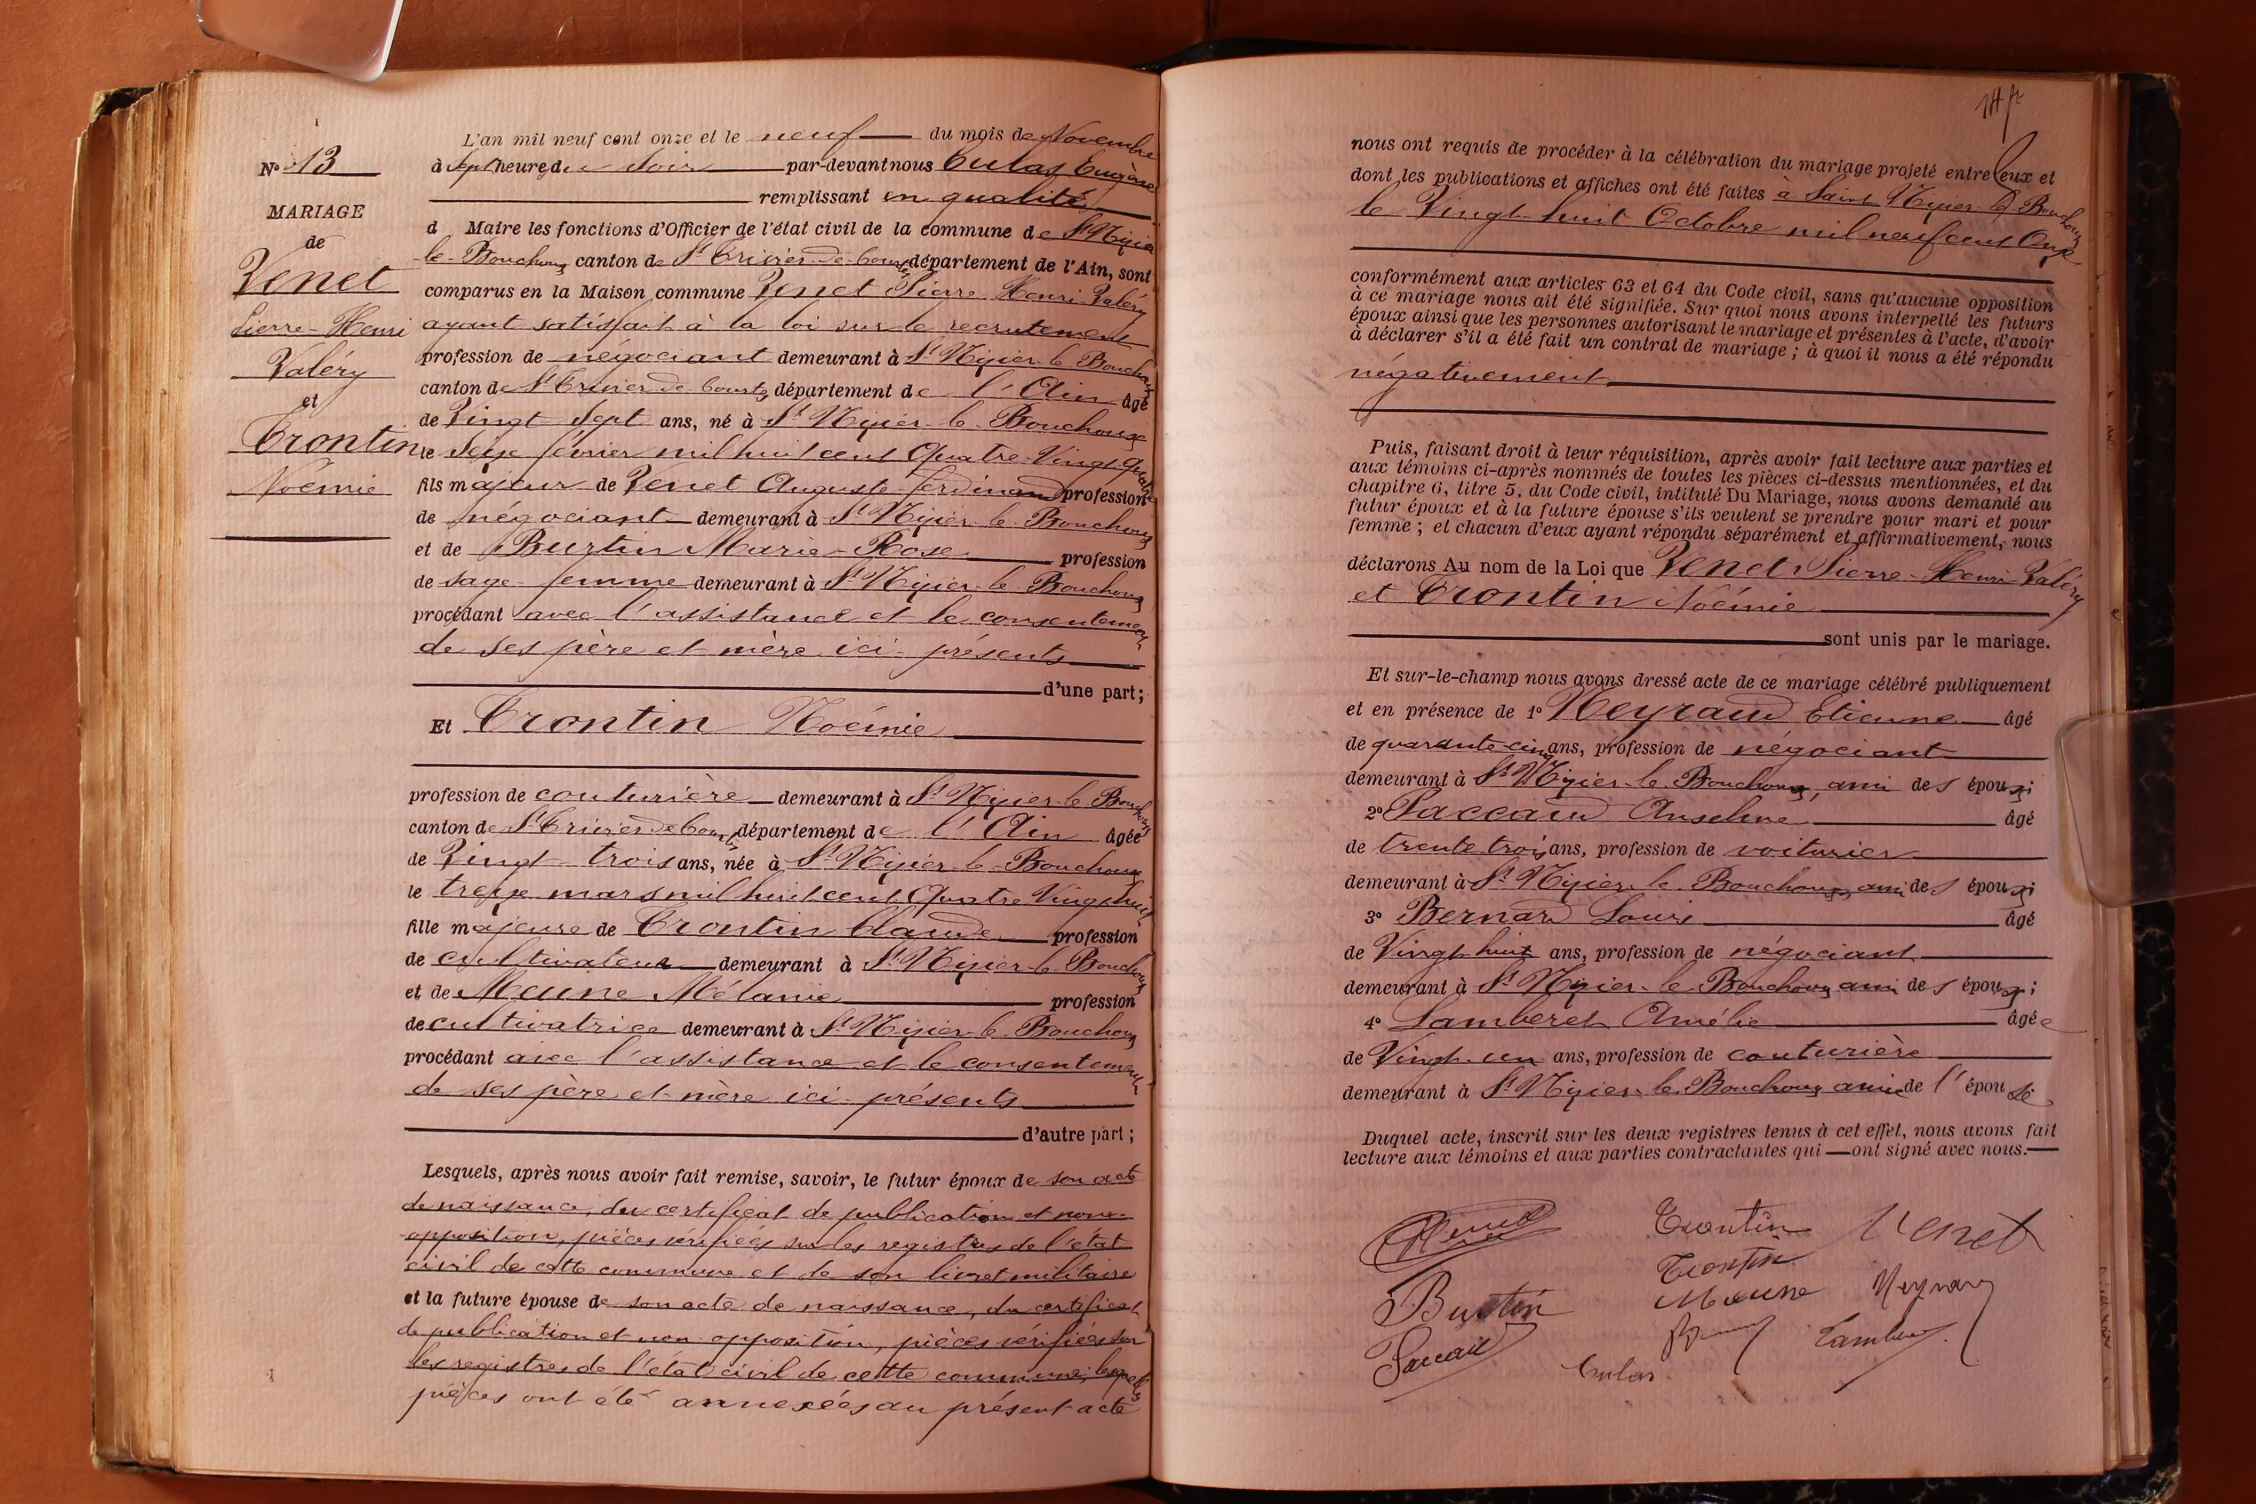 N° 13
MARIAGE
de
Venet
Pierre-Henri
Valéry
et
Trontin
Noémie
L'an mil neuf cent onze et le neuf du mois de Novembre
à sept heures du Soir par-devant nous Culas Eugène
remplissant en qualité
d Maire les fonctions d'Officier de l'état civil de la commune de St Nizier
le-Bouchoux canton de St Trivier-de-Courtes département de l'Ain, sont
comparus en la Maison commune Venet Pierre Henri Valéry
ayant satisfait à la loi sur le recrutement
profession de négociant demeurant à St Nizier-le-Bouchoux
canton de St Trivier-de-Courtes département de l'Ain âgé
de Vingt Sept ans, né à St Nizier-le-Bouchoux
le Seize février mil huit cent Quatre-Vingt-Quatre
fils majeur de Venet Auguste Ferdinand profession
de négociant demeurant à St Nizier-le-Bouchoux
et de Burtin Marie-Rose profession
de sage-femme demeurant à St Nizier-le-Bouchoux
procédant avec l'assistance et le consentement
de ses père et mère ici présents
d'une part;
Et Trontin Noémie
profession de couturière demeurant à St Nizier-le-Bouchoux
canton de St Trivier-de-Courtes département de l'Ain âgée
de Vingt trois ans, née à St Nizier-le-Bouchoux
le treize mars mil huit cent Quatre Vingt huit
fille majeure de Trontin Claude profession
de cultivateur demeurant à St Nizier-le-Bouchoux
et de Maune Mélanie profession
de cultivatrice demeurant à St Nizier-le-Bouchoux
procédant avec l'assistance et le consentement
de ses père et mère ici présents
d'autre part;
Lesquels, après nous avoir fait remise, savoir, le futur époux de son acte
de naissance, du certificat de publication et non-
opposition, pièces vérifiées sur les registres de l'état
civil de cette commune et de son livret militaire
et la future épouse de son acte de naissance, du certificat
de publication et non opposition, pièces vérifiées sur
les registres de l'état civil de cette commune; lesquelles
pièces ont été annexées au présent acte
nous ont requis de procéder à la célébration du mariage projeté entre eux et
dont les publications et affiches ont été faites à Saint Nizier-le-Bouchoux
le Vingt huit Octobre mil neuf cent Onze
conformément aux articles 63 et 64 du Code civil, sans qu'aucune opposition
à ce mariage nous ait été signifiée. Sur quoi nous avons interpellé les futurs
époux ainsi que les personnes autorisant le mariage et présentes à l'acte, d'avoir
à déclarer s'il a été fait un contrat de mariage; à quoi il nous a été répondu
négativement
Puis, faisant droit à leur réquisition, après avoir fait lecture aux parties et
aux témoins ci-après nommés de toutes les pièces ci-dessus mentionnées, et du
chapitre 6, titre 5, du Code civil, intitulé Du Mariage, nous avons demandé au
futur époux et à la future épouse s'ils veulent se prendre pour mari et pour
femme; et chacun d'eux ayant répondu séparément et affirmativement, nous
déclarons Au nom de la Loi que Venet Pierre-Henri-Valéry
et Trontin Noémie
sont unis par le mariage.
Et sur-le-champ nous avons dressé acte de ce mariage célébré publiquement
et en présence de 1° Neyraud Etienne âgé
de quarante-cinq ans, profession de négociant
demeurant à St Nizier-le-Bouchoux, ami des époux;
2° Paccaud Anselme âgé
de trente trois ans, profession de voiturier
demeurant à St Nizier-le-Bouchoux, ami des époux;
3° Bernard Louis âgé
de Vingt-huit ans, profession de négociant
demeurant à St Nizier-le-Bouchoux ami des époux;
4° Lamberet Amélie âgée
de Vingt-un ans, profession de couturière
demeurant à St Nizier-le-Bouchoux amie de l'épouse
Duquel acte, inscrit sur les deux registres tenus à cet effet, nous avons fait
lecture aux témoins et aux parties contractantes qui ont signé avec nous.
Venet Trontin Venet
Trontin
Burtin Maune Neyraud
Paccaud Lamberet
Culas